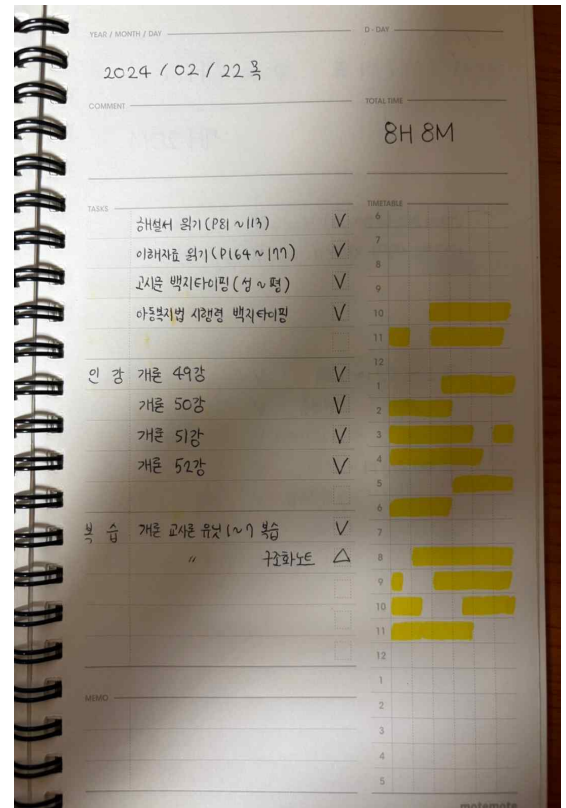 YEAR / MONTH / DAY
D - DAY
2024 / 02 / 22 목
COMMENT
TOTAL TIME
8H 8M
TASKS
해설서 읽기 (P81 ~ 113) V
이해자료 읽기 (P164 ~ 177) V
고시문 백지타이핑 (성 ~ 평) V
아동복지법 시행령 백지타이핑 V
인 강 개론 49강 V
개론 50강 V
개론 51강 V
개론 52강 V
복 습 개론 교사론 유닛 1 ~ 7 복습 V
〃 구조화노트 △
MEMO
TIMETABLE
6
7
8
9
10
11
12
1
2
3
4
5
6
7
8
9
10
11
12
1
2
3
4
5
motemote